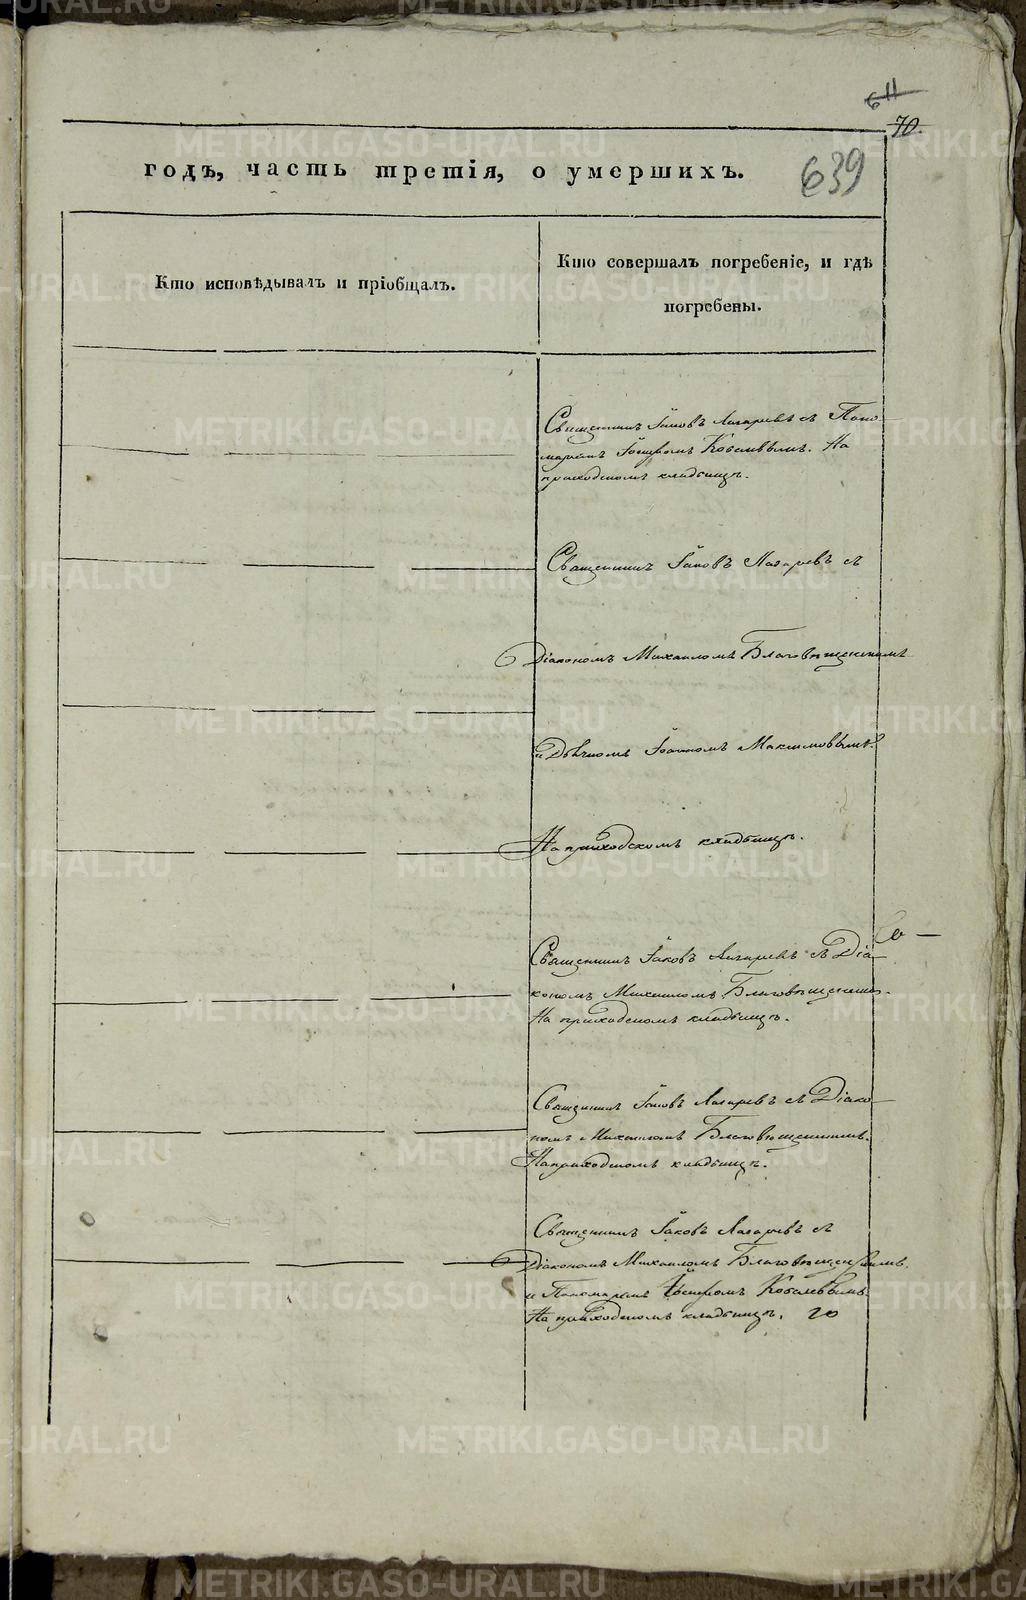 611
70.
639
годъ, часть третія, о умершихъ.
Кто исповѣдывалъ и пріобщалъ.
Кто совершалъ погребеніе, и гдѣ
погребены.
Священникъ Іаковъ Лазаревъ съ Поно
маремъ Іосифомъ Ковалевымъ. На
приходскомъ кладбищѣ.
Священникъ Іаковъ Лазаревъ съ
Діакономъ Михаиломъ Благовѣщенскимъ
и Дьячкомъ Іоанномъ Максимовымъ.
На приходскомъ кладбищѣ.
Священникъ Іаковъ Лазаревъ съ Діа
кономъ Михаиломъ Благовѣщенскимъ.
На приходскомъ кладбищѣ.
Священникъ Іаковъ Лазаревъ съ Діако
номъ Михаиломъ Благовѣщенскимъ.
На приходскомъ кладбищѣ.
Священникъ Іаковъ Лазаревъ съ
Діакономъ Михаиломъ Благовѣщенскимъ
и Пономаремъ Іосифомъ Ковалевымъ.
На приходскомъ кладбищѣ.
METRIKI.GASO-URAL.RU